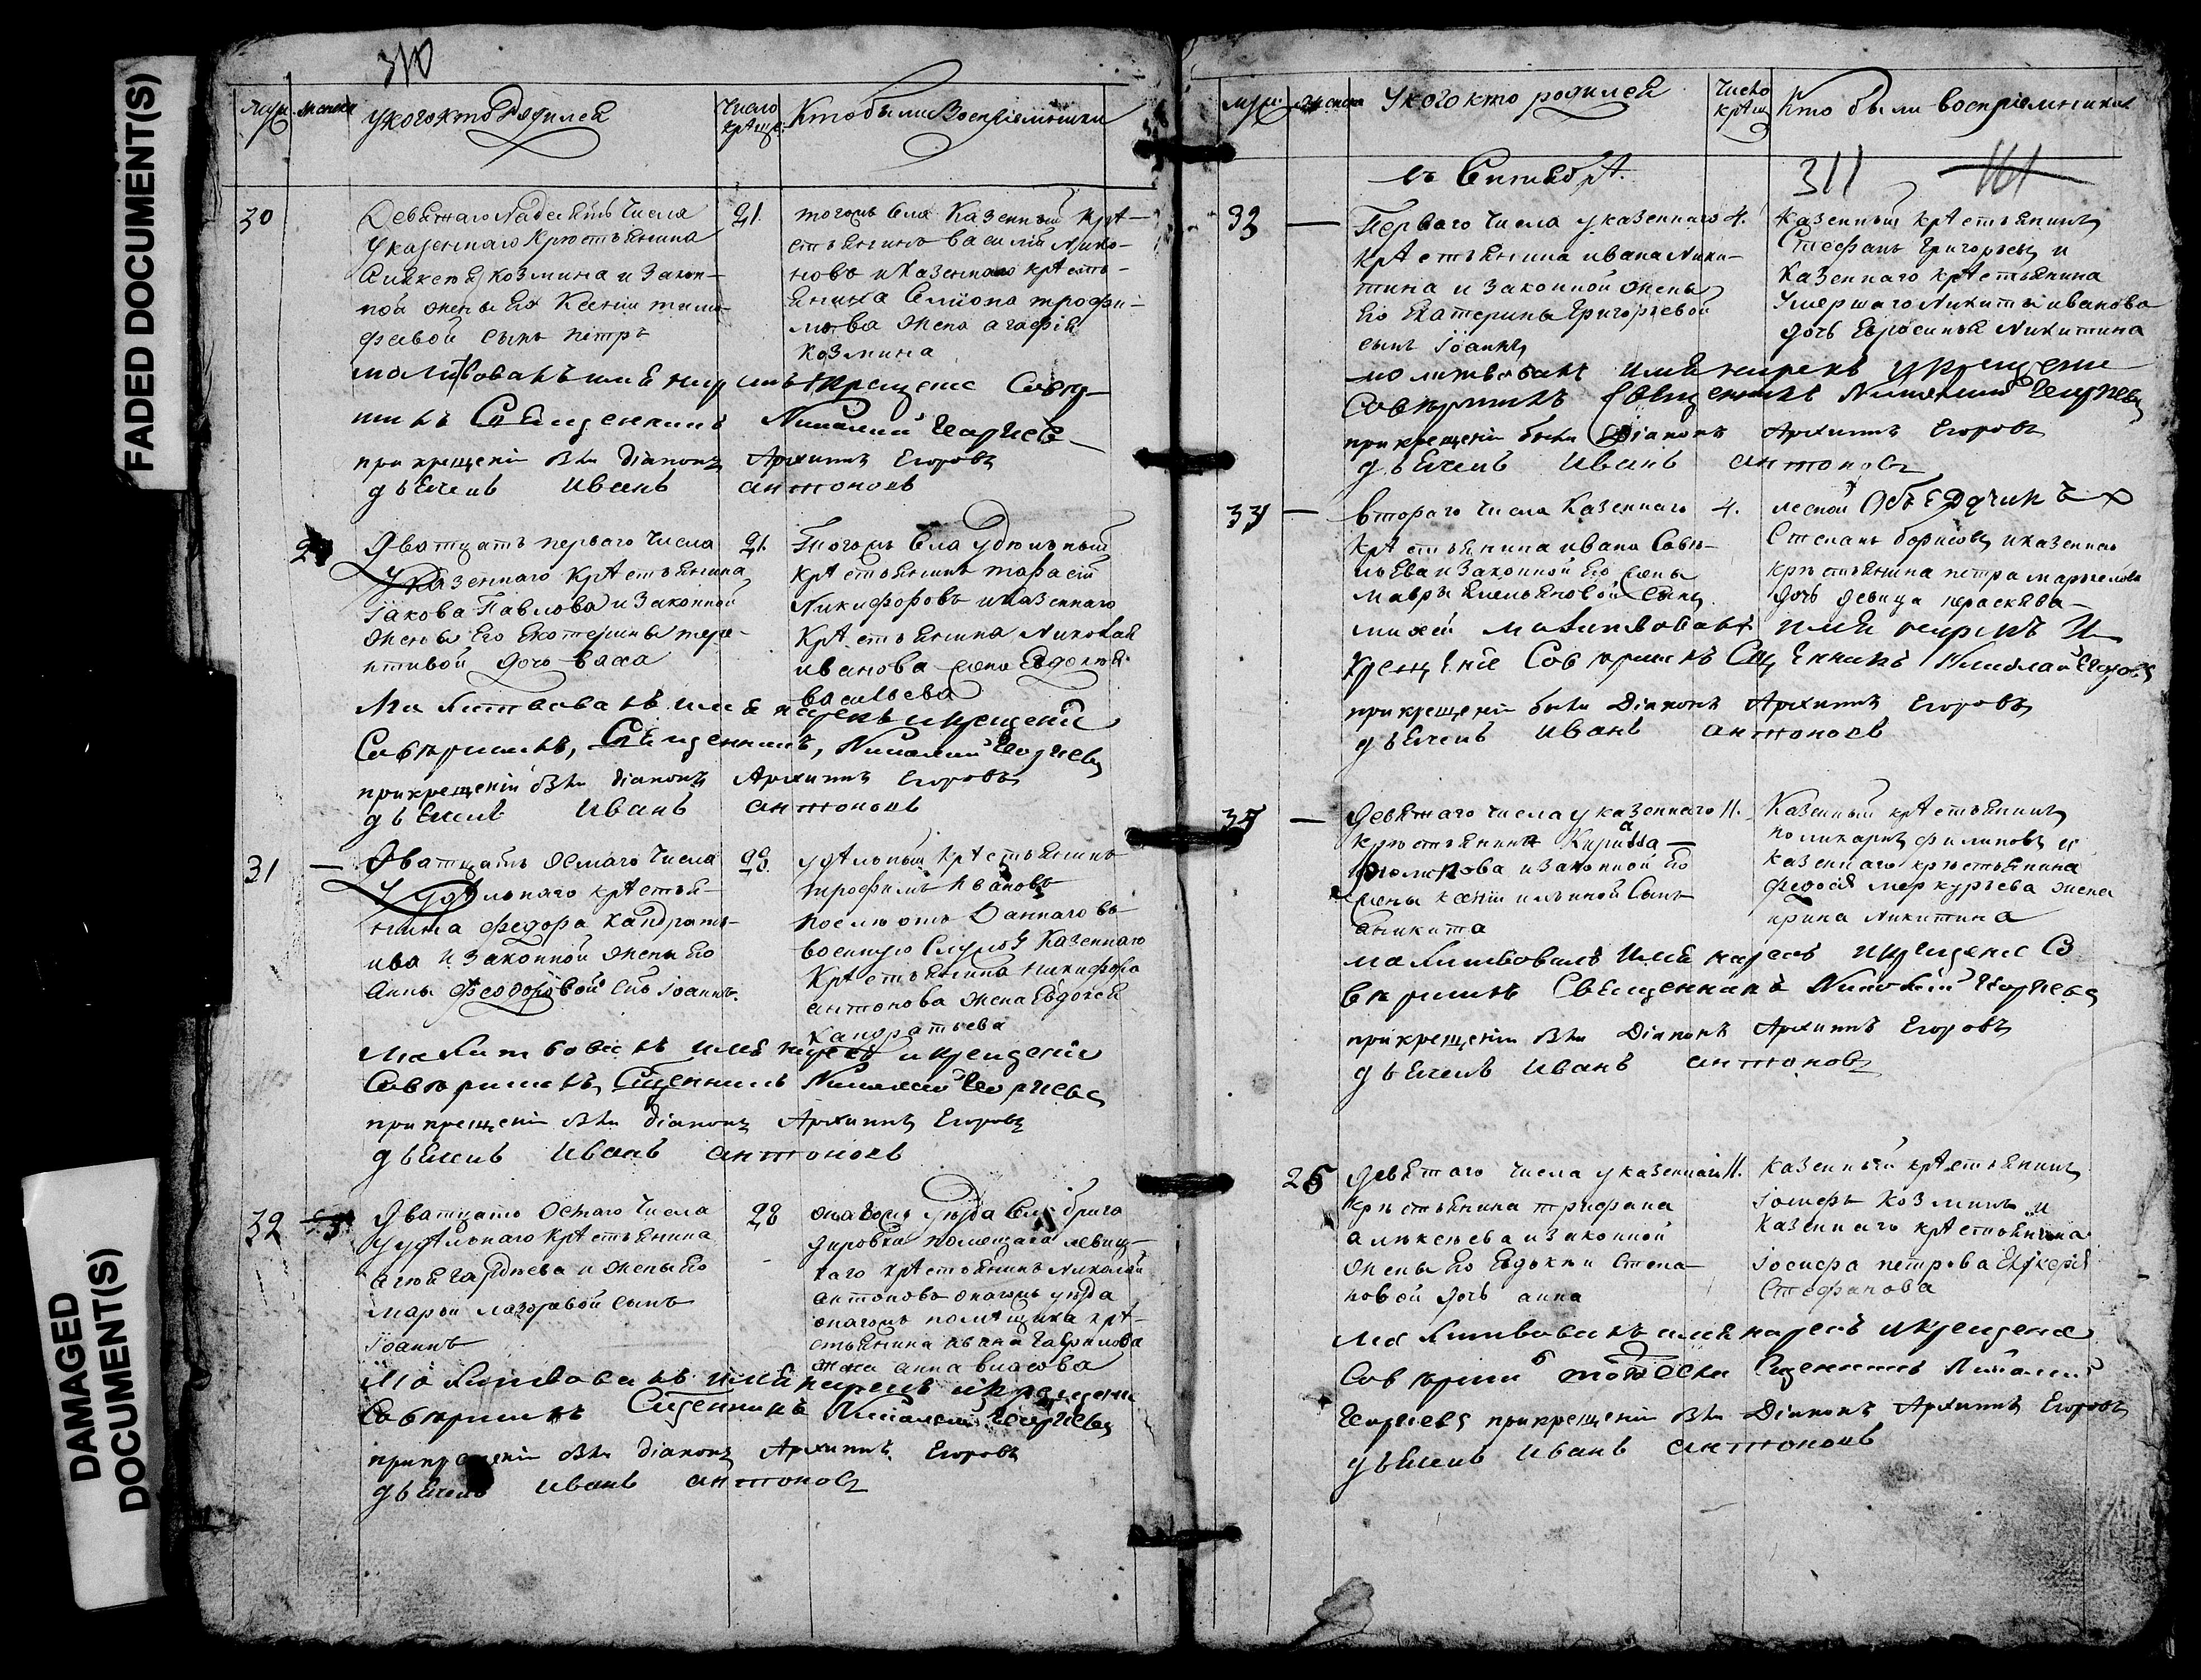 FADED DOCUMENT(S)
DAMAGED
DOCUMENT(S)
310
муж женска У кого кто Родился Число крещ. Кто были Восприемники
30
Девятаго надесять числа
У казеннаго крестьянина
Алексея козмина и закон-
ной жены Ею Ксении тимо-
феевой сынъ петръ
21.
тогожъ села казенный кре-
стьянинъ василий
новъ и казеннаго кресть-
янина Симiона трофи-
мова жена агафiя
козмина
молитвовалъ имя нарекъ крещение Совер-
шилъ Священникъ Николай Георгiевъ
при крещенiи были дiаконъ Архиппъ Егоровъ
дьячекъ Иванъ антоновъ
Дватцать перваго числа
У казеннаго крестьянина
Iакова Павлова и законной
жены Его Екатерины тере-
нтивой дочь васса
21.
Тогожъ села удельный
крестьянинъ тарасiй
Никифоровъ и казеннаго
крестьянина Николая
иванова жена Евдокия
васильева
Молитвовалъ имя нарекъ и крещение
Совершилъ, Священникъ, Николай Георгiевъ
при крещенiи были дiаконъ Архиппъ Егоровъ
дьячекъ Иванъ антоновъ
31 —
Дватцать осмаго числа
У удельнаго крестья-
нина федора кандрать-
ива и законной жены Ево
Анны Феодоровой сынъ Iоаннъ.
28.
удельный крестьянинъ
трофимъ ивановъ
после отданнаго въ
военную службу казеннаго
крестьянина никифора
антонова жена Евдокея
кандратьева
Молитвовалъ имя нарекъ и крещенiе
Совершилъ, Сщенникъ Николай Георгiевъ
при крещенiи были дiаконъ Архиппъ Егоровъ
дьячекъ Иванъ антоновъ
32
Дватцать осмаго числа
У удельнаго крестьянина
и жены Ево
марьи лазоревой сынъ
Iоаннъ
28
онагожъ уезда
помещика
каго крестьянинъ Николай
антоновъ онагожъ уезда
онагожъ помещика кре-
стьянина ивана гаврилова
жена анна власова
Молитвовалъ имя нарекъ и крещение
Совершилъ Сщенникъ Николай Георгiевъ
при крещенiи были дiаконъ Архиппъ Егоровъ
дьячекъ Иванъ антоновъ
муж женска У кого кто родился Число крещ Кто были восприемники
въ Сентебре.
311 161
33 —
Перваго числа у казеннаго
крестьянина ивана Ники-
тина и законной жены
Его Екатерины Григорьевой
сынъ Iоаннъ
4.
Казенный крестьянинъ
Стефанъ Григорьевъ и
казеннаго крестьянина
Умершаго Никиты иванова
дочь Евросинья Никитина
молитвовалъ имя нарекъ и крещение
Совершилъ Священникъ Николай Георгiевъ
при крещенiи были Дiаконъ Архиппъ Егоровъ
дьячекъ Иванъ антоновъ
34 —
втораго числа казеннаго
крестьянина ивана Саве-
льева и законной Его жены
мавры Емельяновой сынъ
4.
лесной Объездчикъ
Степанъ борисовъ и казеннаго
крестьянина петра
дочь девица параскева
молитвовалъ имя нарекъ и
крещенiе Совершилъ Сщенникъ Николай Георгiевъ
при крещенiи были Дiаконъ Архиппъ Егоровъ
дьячекъ Иванъ антоновъ
35 —
Девятаго числа у казеннаго
крестьянина Кирилла
филипова и законной Ево
жены ксении ильиной Сынъ
Аникита
11.
Казенный крестьянинъ
поликарпъ филиповъ и
казеннаго крестьянина
федосея меркурьева жена
ирина никитина
молитвовалъ имя нарекъ и крещение Со
вершилъ Священникъ Николай Георгiевъ
при крещенiи были Дiаконъ Архиппъ Егоровъ
дьячекъ Иванъ антоновъ
25
девятаго числа у казеннаго
крестьянина трифана
алексеева и законной
жены Ево Евдокии Степа-
новой дочь анна
11.
казенный крестьянинъ
Iосифъ козминъ и
казеннаго крестьянина
Iосифа петрова
Стефанова
Молитвовалъ имя нарекъ и крещение
Совершилъ Сщенникъ Николай
Георгiевъ при крещенiи были Дiаконъ Архиппъ Егоровъ
дьячекъ Иванъ антоновъ